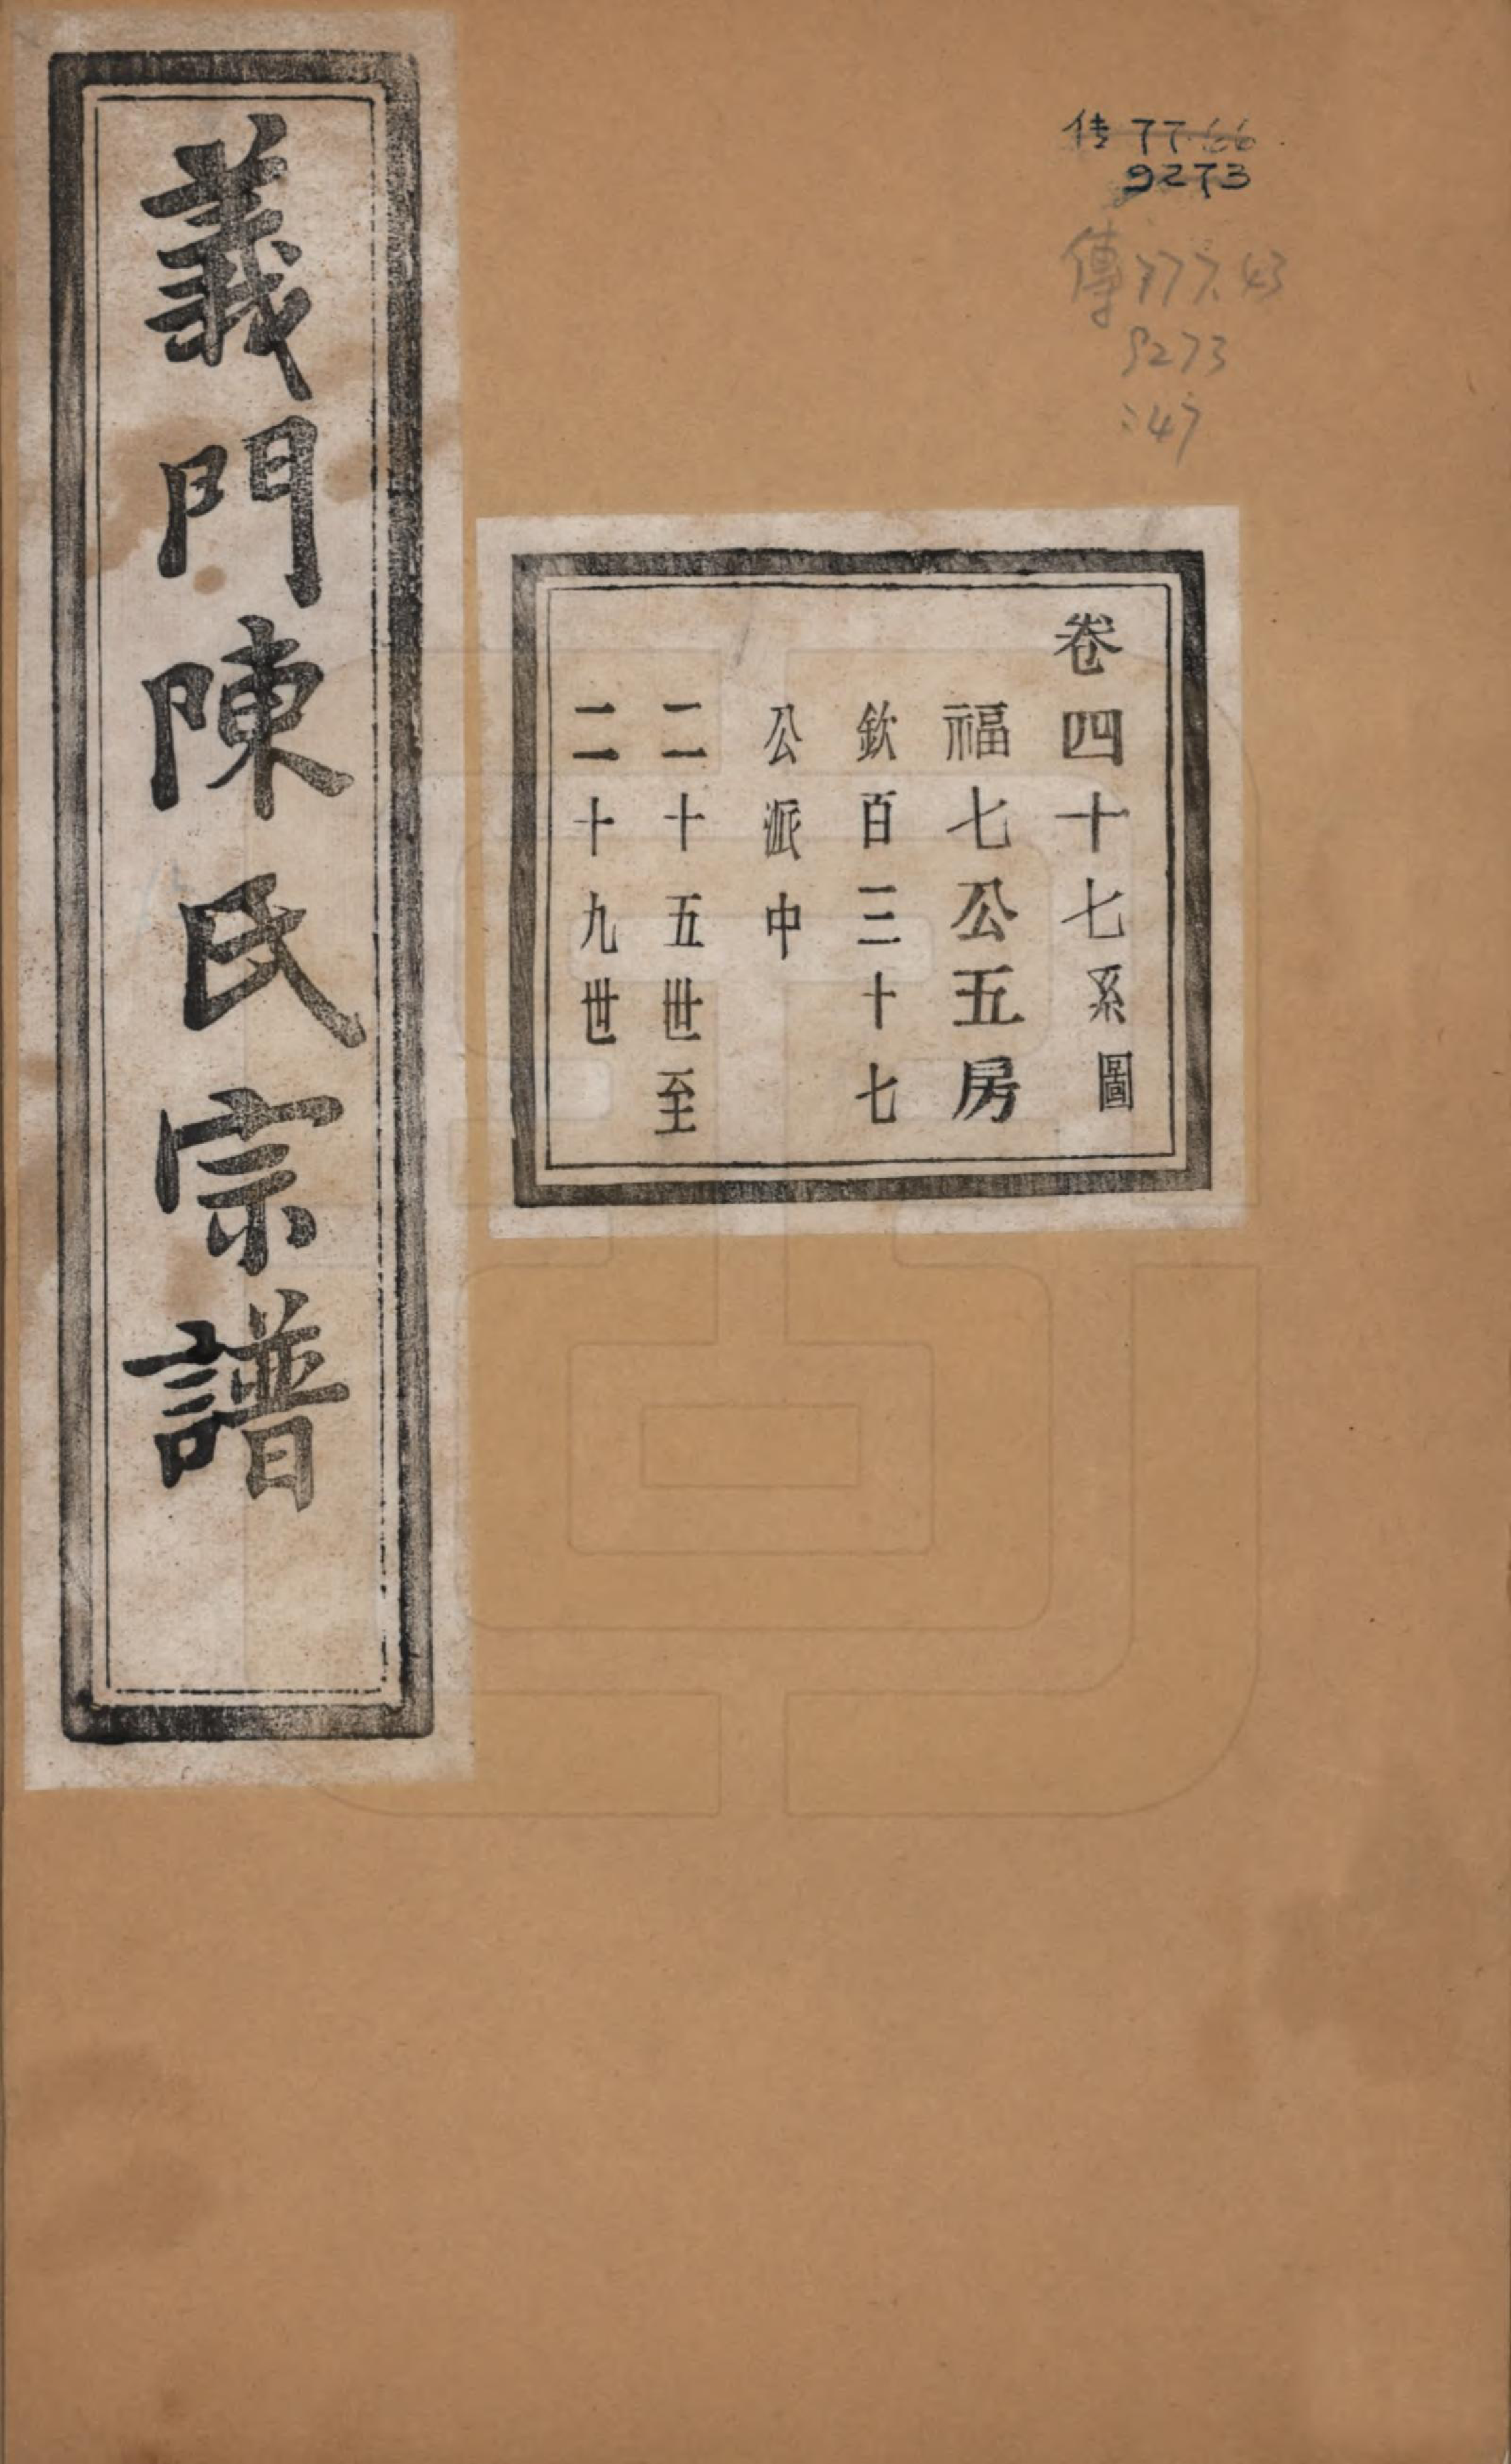 传 77.66
9273
傳 977.43
9273
:47
卷四十七系圖
福七公五房
欽百三十七
公派中
二十五世至
二十九世
義門陳氏宗譜